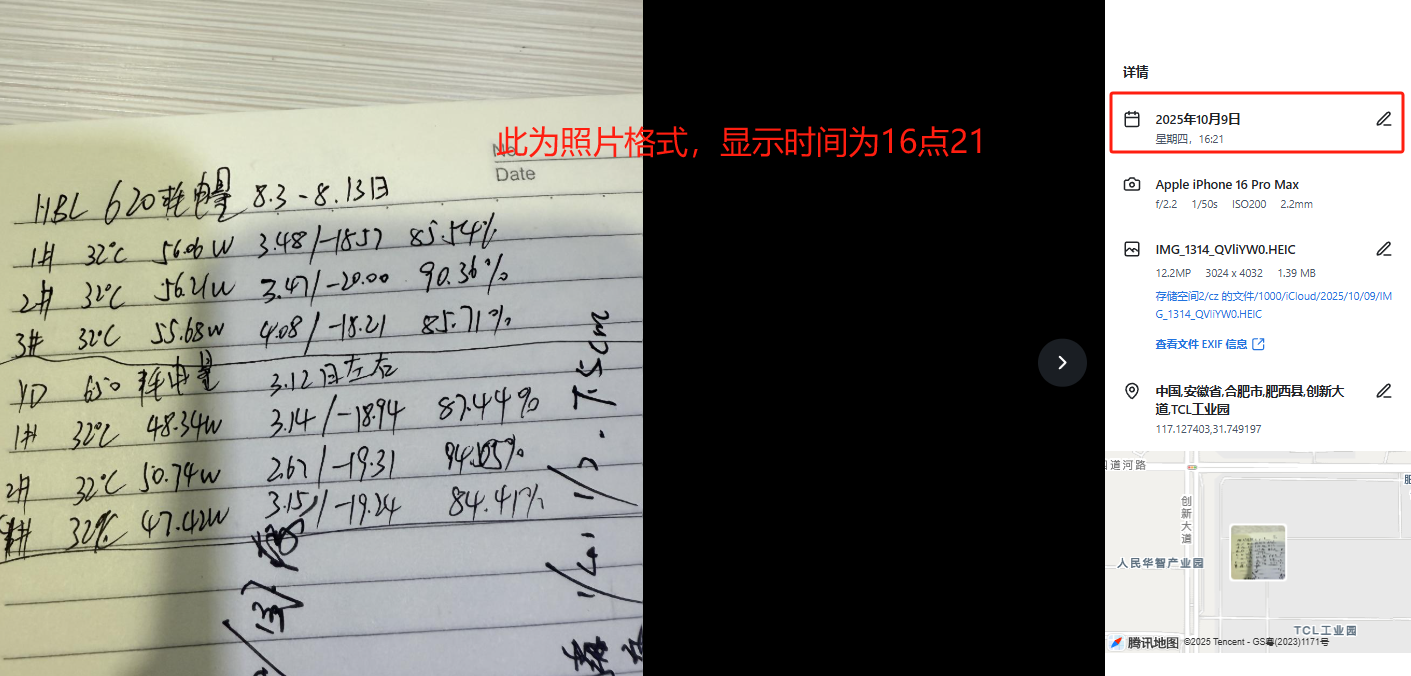 此为照片格式，显示时间为16点21
No
Date
HBL 620耗电量 8.3-8.13日
1# 32℃ 56.06W 3.48/-18.57 85.54%
2# 32℃ 56.21W 3.47/-20.00 90.36%
3# 32℃ 55.68W 4.08/-18.21 85.71%
YD 650 耗电量 3.12日左右
1# 32℃ 48.34W 3.14/-18.94 87.44%
2# 32℃ 50.74W 2.67/-19.31
32℃ 47.42W 3.15/-19.24 84.41%
详情
2025年10月9日
星期四，16:21
Apple iPhone 16 Pro Max
f/2.2 1/50s ISO200 2.2mm
IMG_1314_QVliYW0.HEIC
12.2MP 3024 x 4032 1.39 MB
存储空间2/cz 的文件/1000/iCloud/2025/10/09/IM
G_1314_QVliYW0.HEIC
查看文件 EXIF 信息
中国,安徽省,合肥市,肥西县,创新大
道,TCL工业园
117.127403,31.749197
道河路
创新大道
肥
人民华智产业园
TCL工业园
腾讯地图 ©2025 Tencent - GS粤(2023)1171号